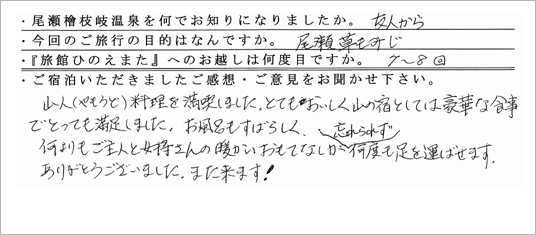 ・尾瀬檜枝岐温泉を何でお知りになりましたか。 友人から
・今回のご旅行の目的はなんですか。 尾瀬 草もみじ
・『旅館ひのえまた』へのお越しは何度目ですか。 7〜8回
・ご宿泊いただきましたご感想・ご意見をお聞かせ下さい。
山人(やもうど)料理を満喫しました。とてもおいしく山の宿としては豪華な食事
でとっても満足しました。お風呂もすばらしく、
何よりもご主人と女将さんの暖かいおもてなしが忘れられず何度も足を運ばせます。
ありがとうございました。また来ます!